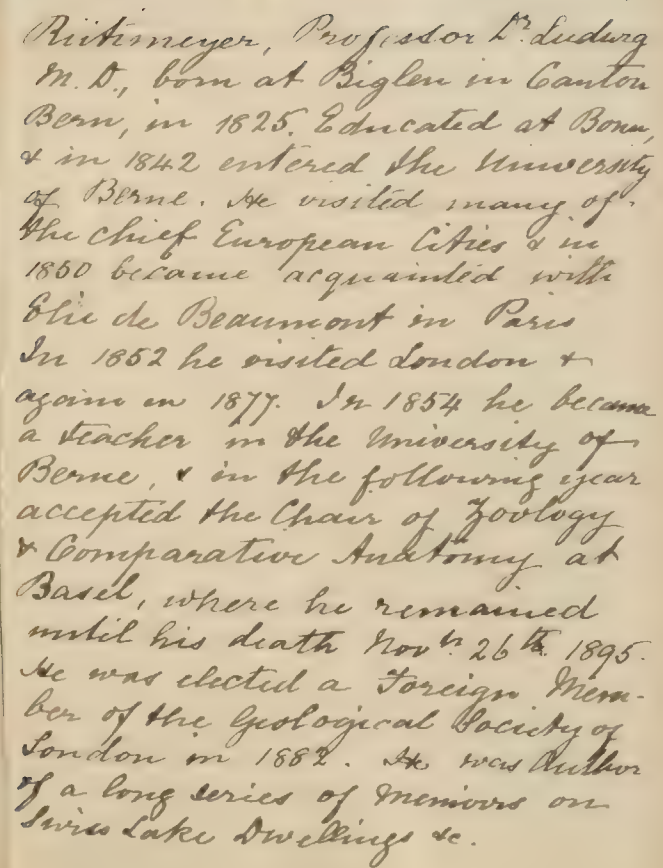 Rütimeyer, Professor Dr. Ludwig
M.D., born at Biglen in Canton
Bern, in 1825. Educated at Bonn,
& in 1842 entered the University
of Berne. He visited many of
the chief European Cities & in
1850 became acquainted with
Elie de Beaumont in Paris
In 1852 he visited London &
again in 1877. In 1854 he became
a teacher in the University of
Berne, & in the following year
accepted the Chair of Zoology
& Comparative Anatomy at
Basel, where he remained
until his death Novbr 26th. 1895.
He was elected a Foreign Mem-
ber of the Geological Society of
London in 1882. He was Author
of a long series of Memoirs on
Swiss Lake Dwellings &c.